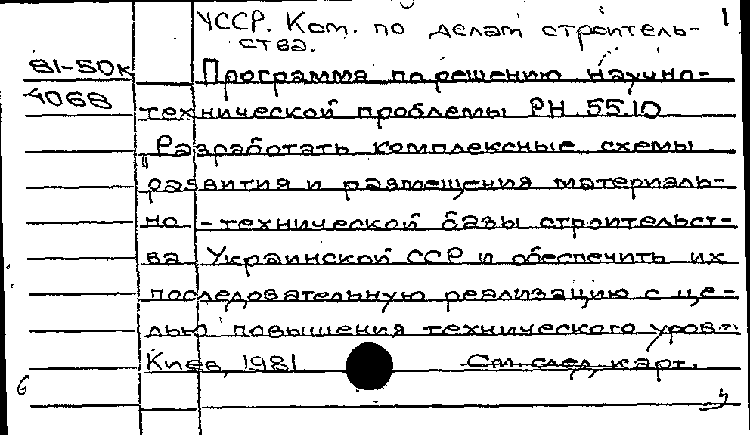 1
УССР. Ком. по делам строитель-
ства.
81-50к
4068
Программа по решению научно-
технической проблемы РН.55.10
"Разработать комплексные схемы
развития и размещения материаль-
но-технической базы строительст-
ва Украинской ССР и обеспечить их
последовательную реализацию с це-
лью повышения технического уров-
Киев, 1981 См. след. карт.
б